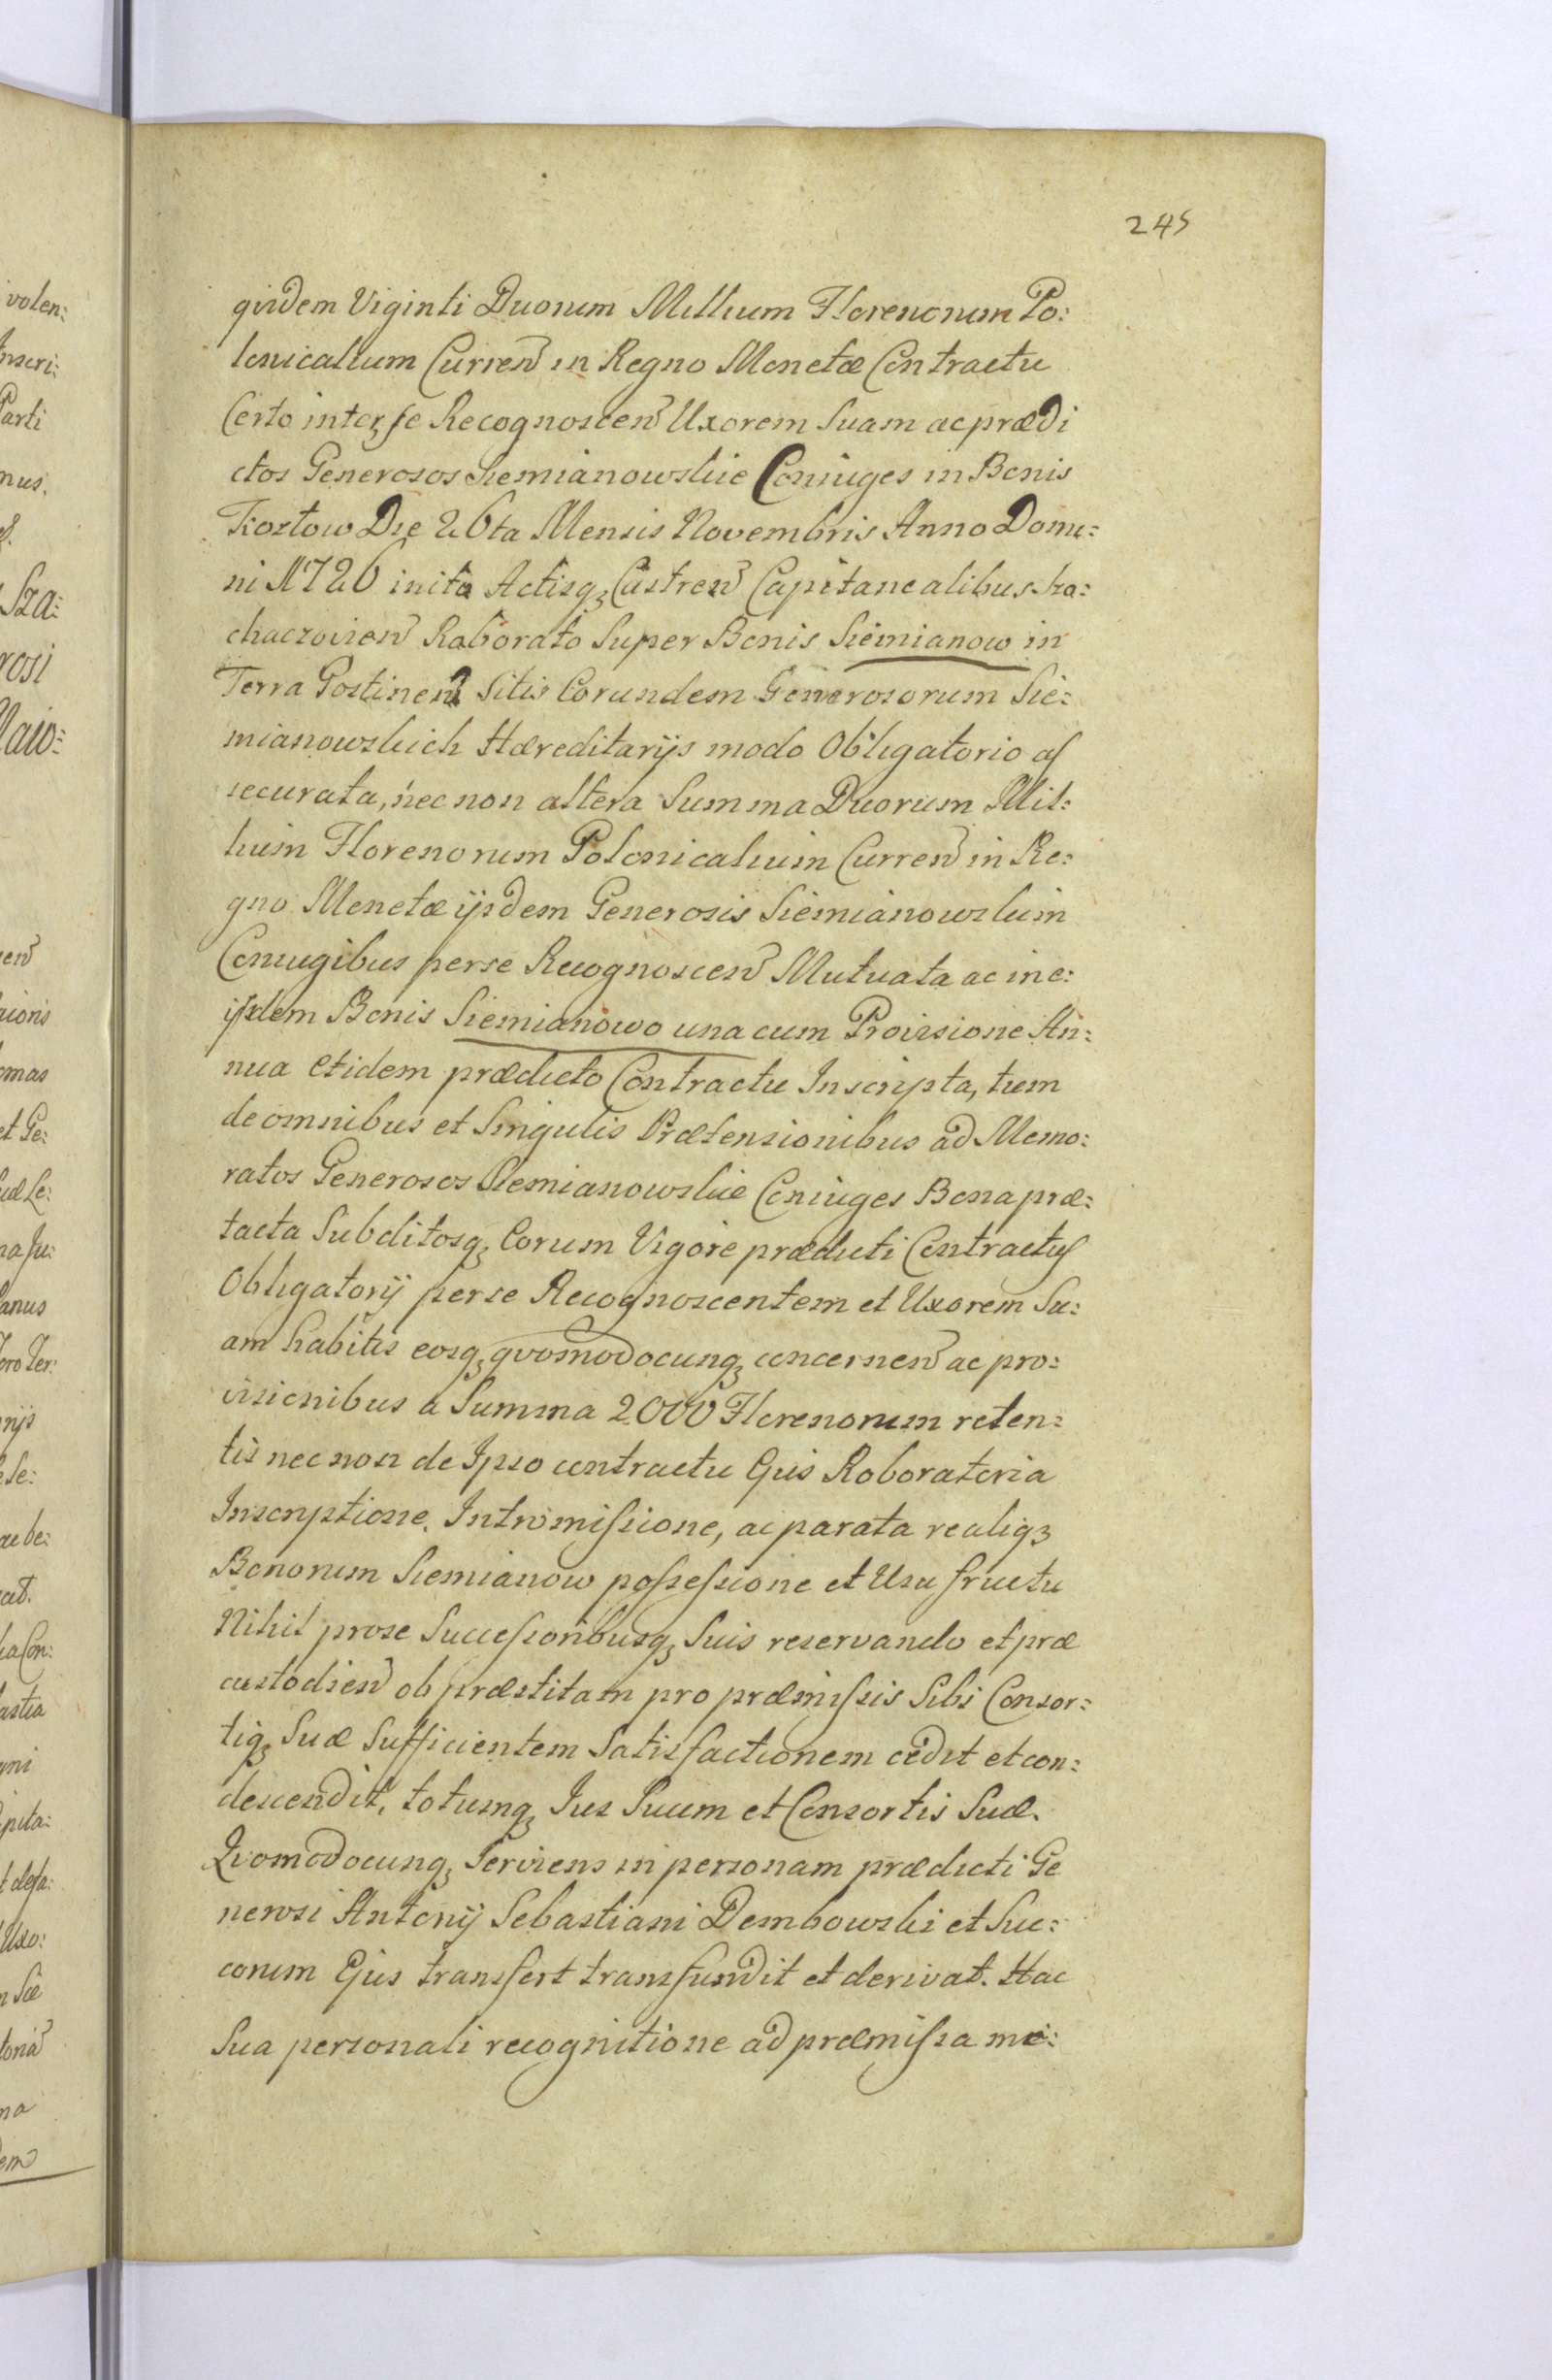 245
quidem Viginti Duorum Millium Florenorum Po:
lonicalium Curren in Regno Monetæ Contractu
Certo inter se Recognoscen Uxorem Suam ac prædi
ctos Generosos Siemianowskie Coniuges in Bonis
Kozłow Die 26ta Mensis Novembris Anno Domi:
ni 1726 inita Actisq Castren Capitanealibus So:
chaczovien Roborato Super Bonis Siemianow in
Terra Gostinen Sitis Eorundem Generosorum Sie:
mianowskich Hæreditarijs modo Obligatorio as
securata, nec non altera Summa Duorum Mil:
lium Florenorum Polonicalium Curren in Re:
gno Monetæ ijsdem Generosis Siemianowskim
Coniugibus per se Recognoscen Mutuata ac in e:
ijsdem Bonis Siemianowo una cum Provisione An:
nua et idem prædicto Contractu Inscripta, tum
de omnibus et Singulis Prætensionibus ad Memo:
ratos Generosos Siemianowskie Coniuges Bona præ:
tacta Subditosq Eorum Vigore prædicti Contractus
Obligatorij per se Recognoscentem et Uxorem Su:
am habitis eosq quomodocunq concernen ac pro:
visionibus a Summa 2000 Florenorum reten:
tis nec non de Ipso contractu Ejus Roboratoria
Inscriptione, Intromissione, ac parata realiq
Bonorum Siemianow possessione et Usu fructu
Nihil pro se Successoribusq Suis reservando et præ
custodien ob præstitam pro præmissis Sibi Consor:
tiq Suæ Sufficientem Satisfactionem cedit et con:
descendit, totumq Jus Suum et Consortis Suæ.
Quomodocunq Serviens in personam prædicti Ge
nerosi Antonij Sebastiani Dembowski et Suc:
corum Ejus transfert transfundit et derivat. Hac
Sua personali recognitione ad præmissa me: